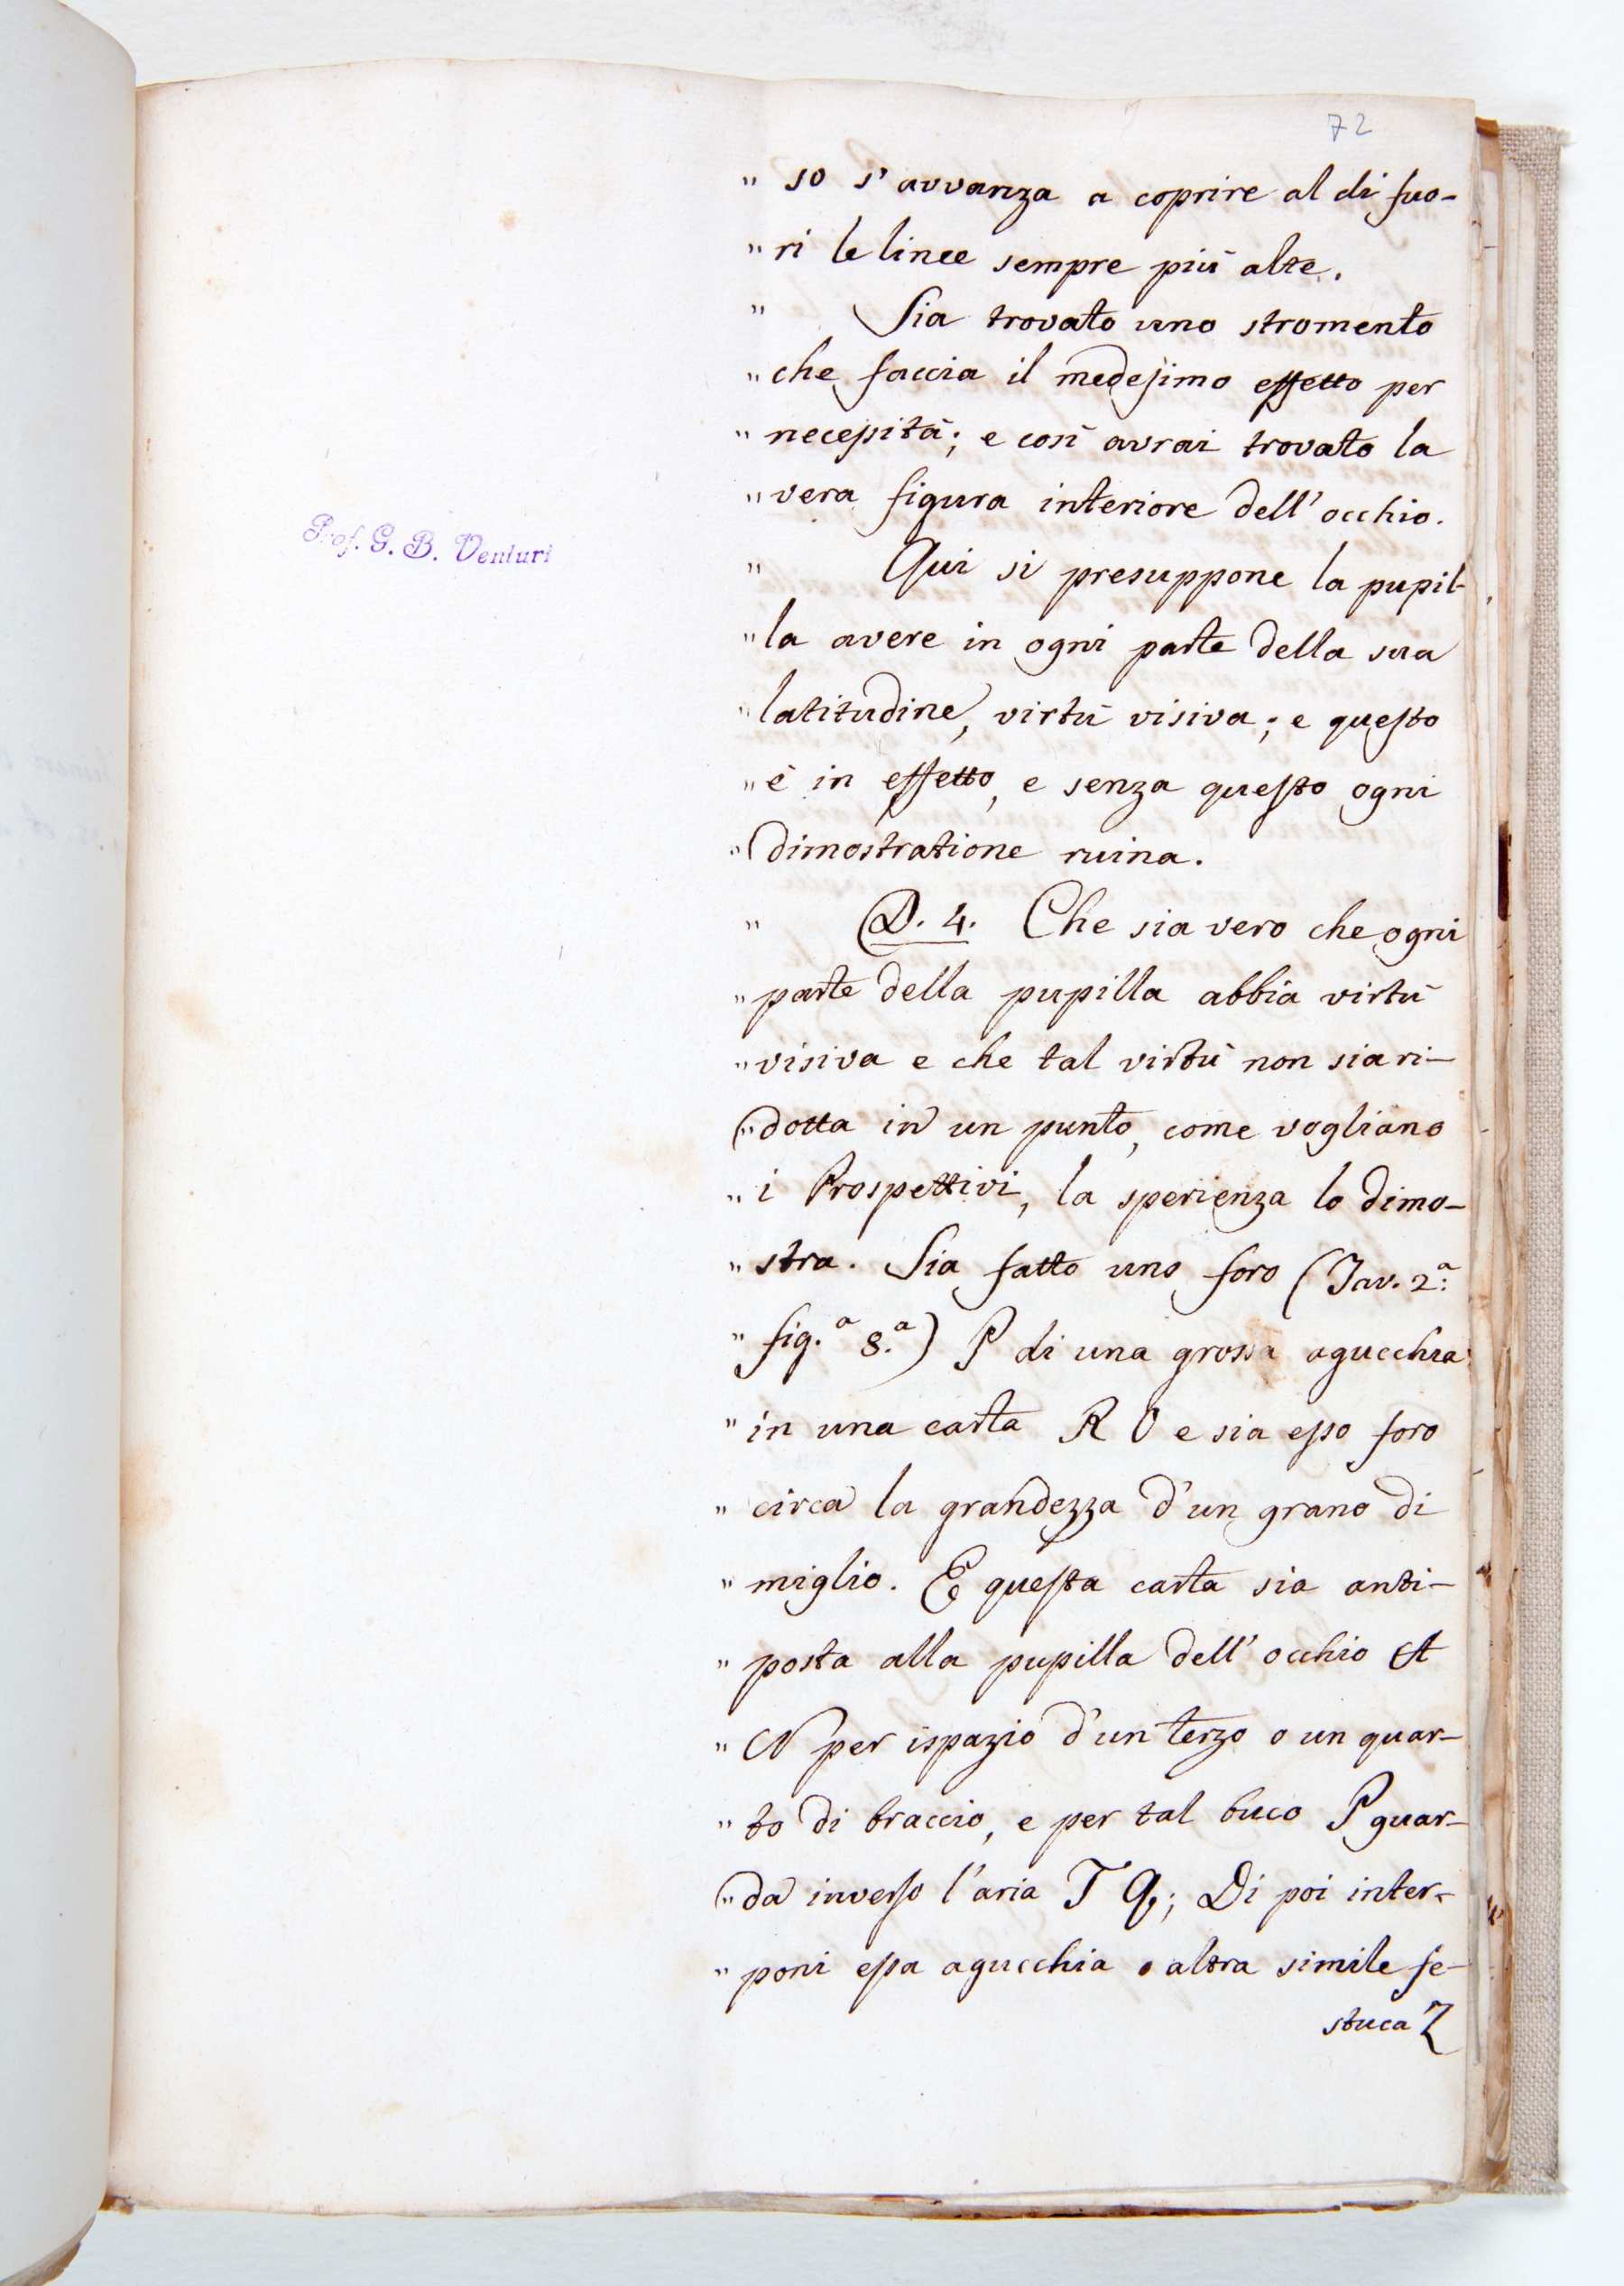 72
" so s'avvanza a coprire al di fuo-
" ri le linee sempre più alte.
" Sia trovato uno stromento
" che faccia il medesimo effetto per
" necessità; e così avrai trovato la
" vera figura interiore dell'occhio.
Prof. G. B. Venturi
" Qui si presuppone la pupil-
" la avere in ogni parte della sua
" latitudine, virtù visiva; e questo
" è in effetto, e senza questo ogni
" dimostratione ruina.
" D. 4. Che sia vero che ogni
" parte della pupilla abbia virtù
" visiva e che tal virtù non sia ri-
" dotta in un punto, come vogliano
" i Prospettivi, la sperienza lo dimo-
" stra. Sia fatto uno foro (Tav. 2.ª
" fig.ª 8.ª) P di una grossa agucchia
" in una carta R O e sia esso foro
" circa la grandezza d'un grano di
" miglio. E questa carta sia anti-
" posta alla pupilla dell'occhio A
" N per ispazio d'un terzo o un quar-
" to di braccio, e per tal buco P guar-
" da inverso l'aria T Q; Di poi inter-
" poni essa agucchia o altra simile fe-
stuca Z